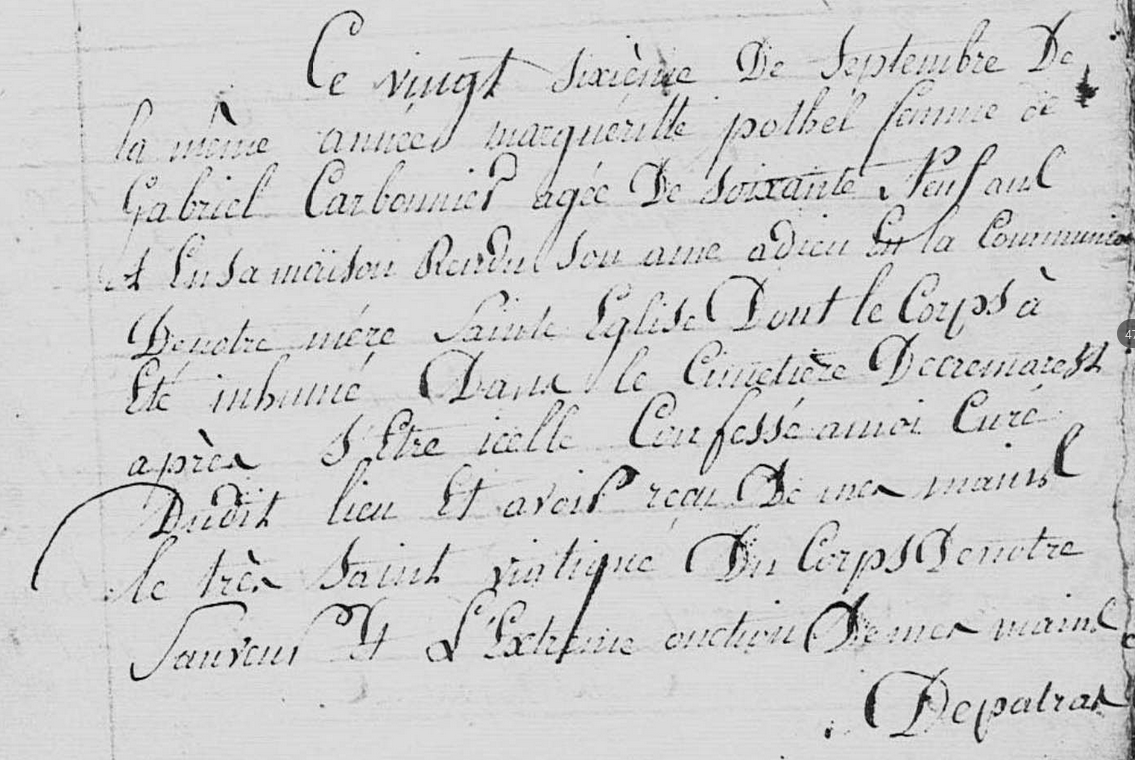 Ce vingt sixième De Septembre De
la même année marguéritte pothel femme de
Gabriel Carbonnier agée De soixante Neuf ans
A En sa maison Rendu son ame a dieu En la Communion
De notre mére Sainte Eglise Dont le Corps à
Eté inhumé Dans le Cimetière De cremarest
après s'Etre icelle Confessé a moi Curé
Dudit lieu Et avoir reçu De mes mains
le très Saint viatique Du Corps De notre
Sauveur Et L'Extreme onction De mes mains
Depatras